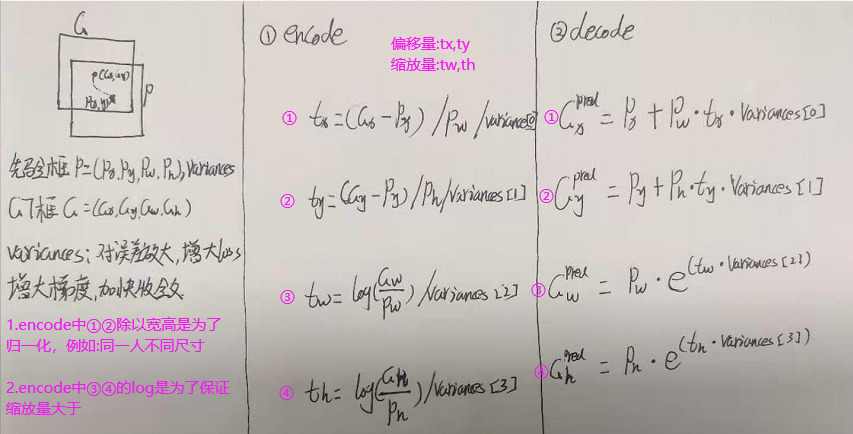 G
(Gx,Gy)
P(x,y)
P
先验框 P=(Px,Py,Pw,Ph),Variances
GT框 G=(Gx,Gy,Gw,Gh)
Variances:对误差放大,增大loss
增大梯度,加快收敛
1.encode中①②除以宽高是为了
归一化，例如:同一人不同尺寸
2.encode中③④的log是为了保证
缩放量大于
① encode
偏移量:tx,ty
缩放量:tw,th
① tx=(Gx-Px)/Pw/variance[0]
② ty=(Gy-Py)/Ph/Variances[1]
③ tw=log(Gw/Pw)/Variances[2]
④ th=log(Gh/Ph)/Variances[3]
② decode
① Gx^pred = Px+Pw·tx·Variances[0]
② Gy^pred = Py+Ph·ty·Variances[1]
③ Gw^pred = Pw·e^(tw·Variances[2])
④ Gh^pred = Ph·e^(th·Variances[3])